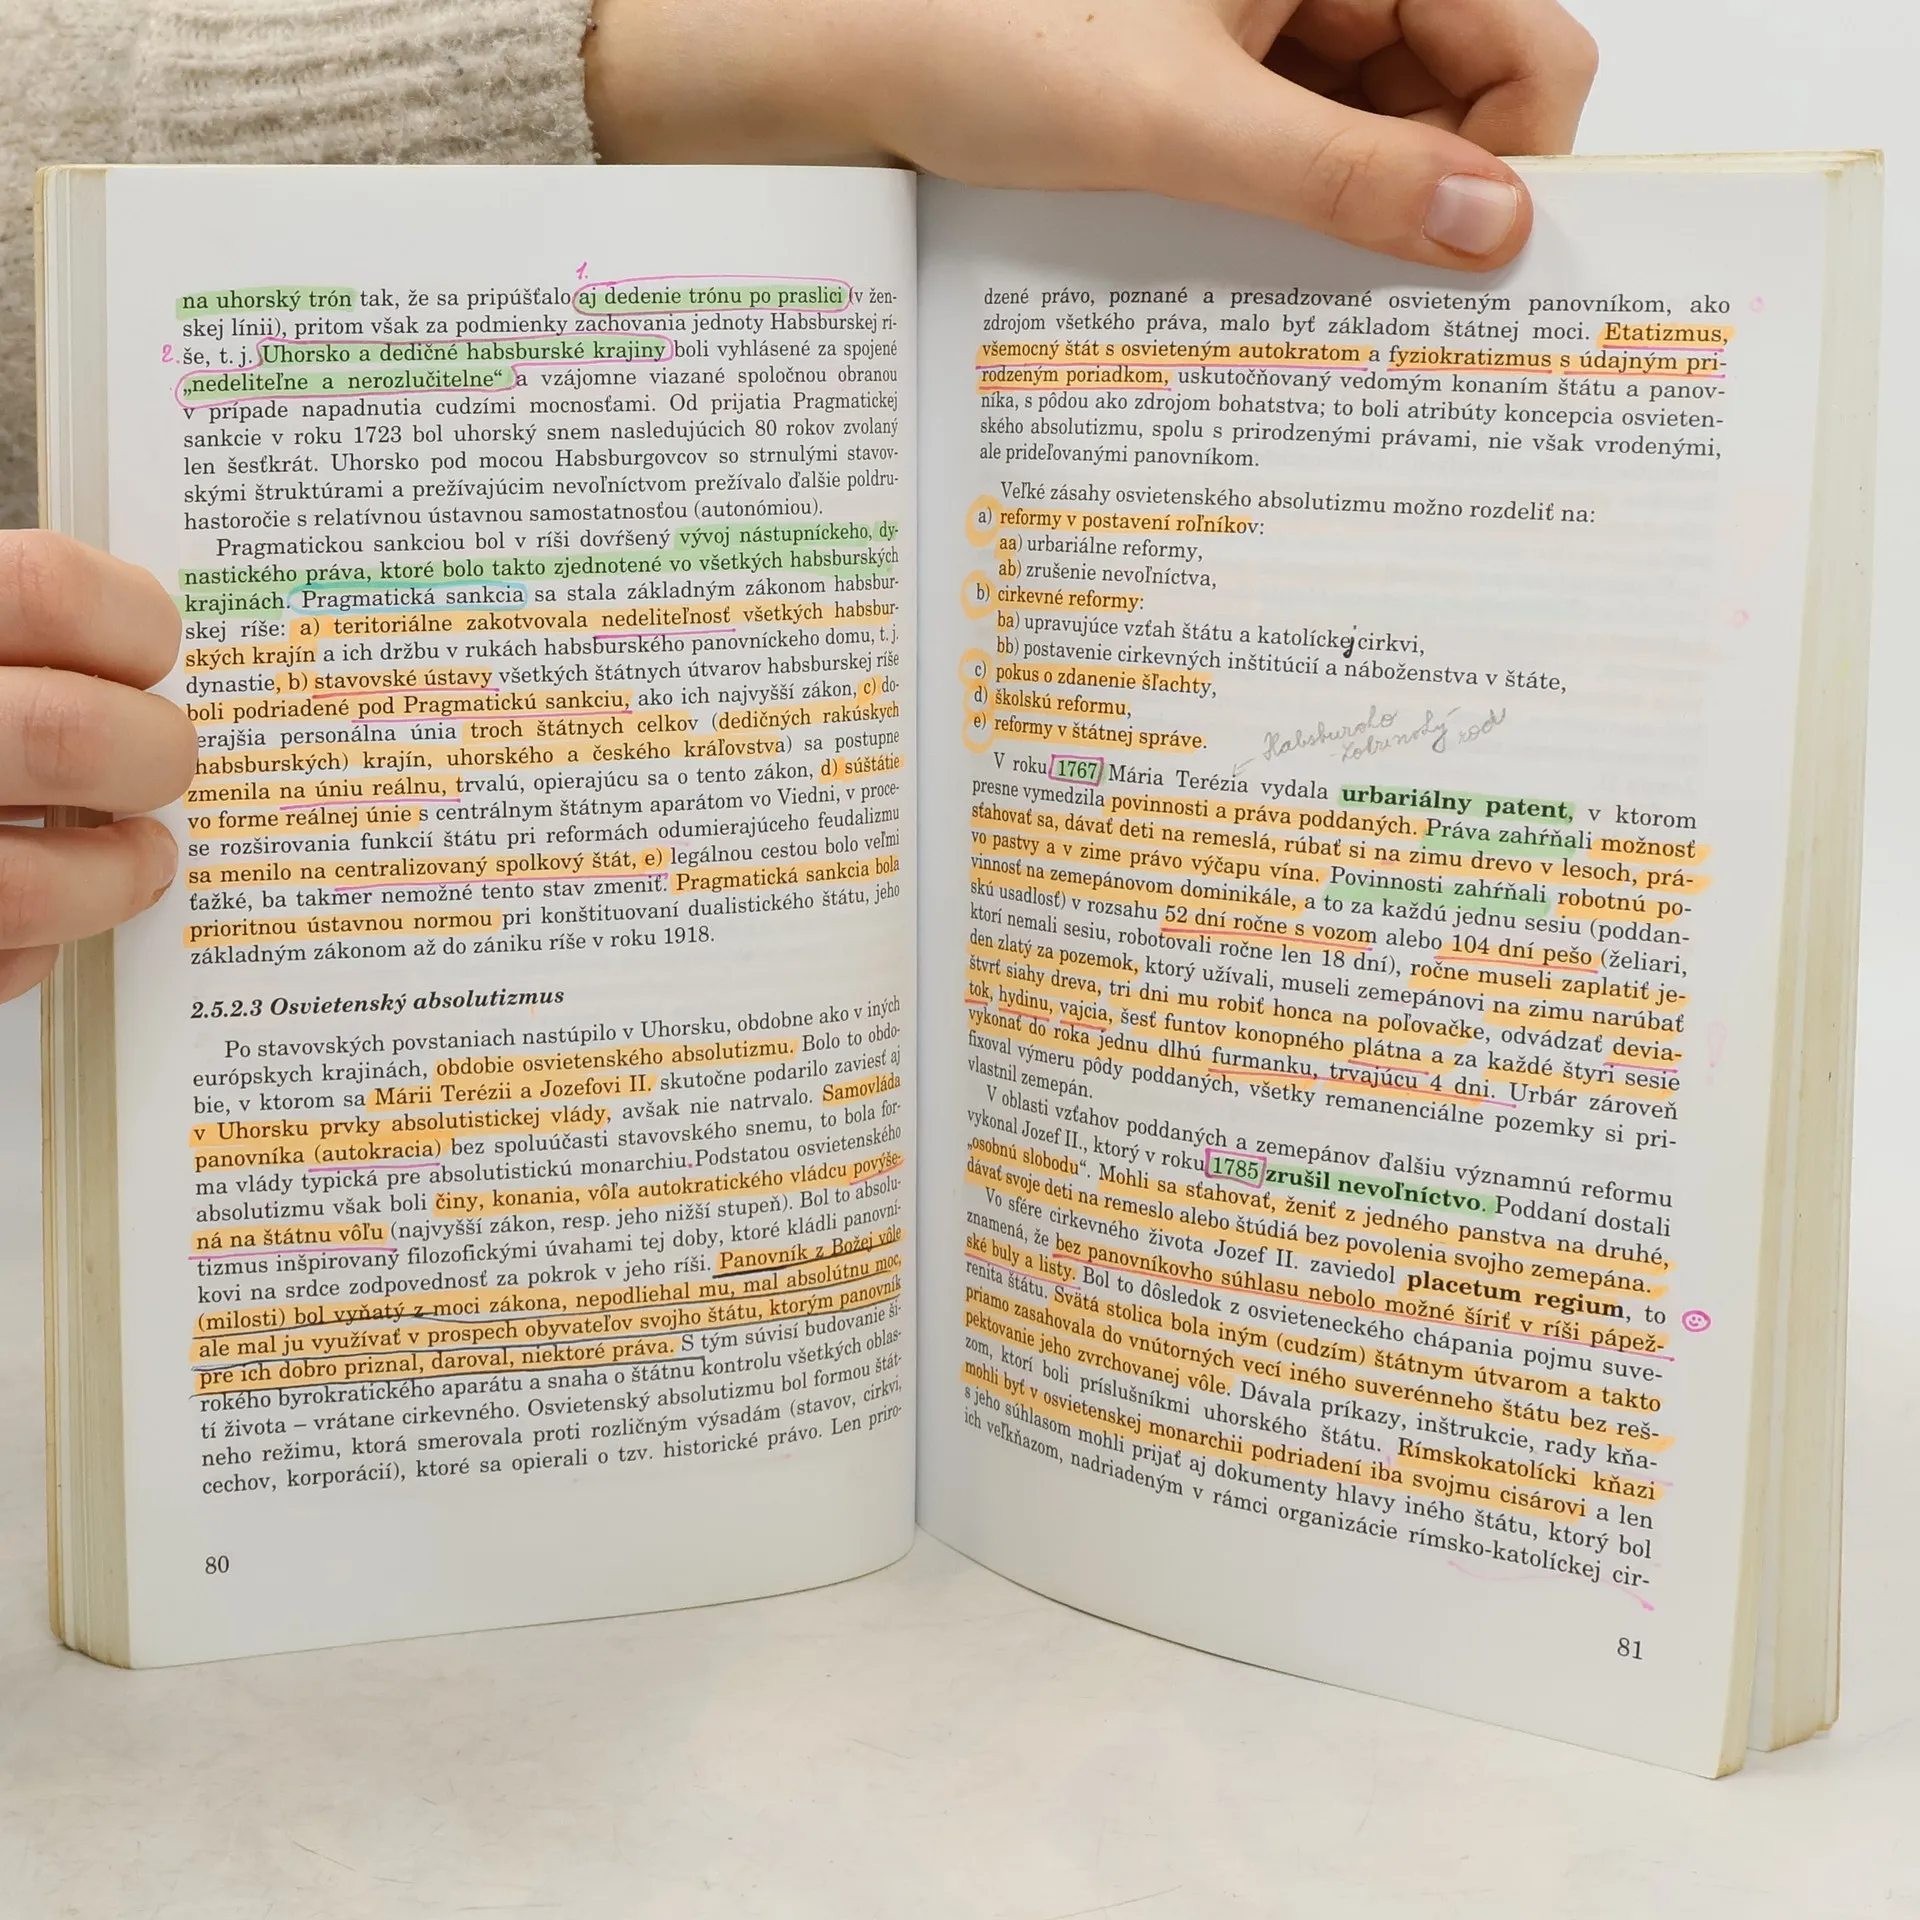 1.
na uhorský trón tak, že sa pripúšťalo aj dedenie trónu po praslici (v žen-
skej línii), pritom však za podmienky zachovania jednoty Habsburskej rí-
2. še, t. j. Uhorsko a dedičné habsburské krajiny boli vyhlásené za spojené
„nedeliteľne a nerozlučitelne“ a vzájomne viazané spoločnou obranou
v prípade napadnutia cudzími mocnosťami. Od prijatia Pragmatickej
sankcie v roku 1723 bol uhorský snem nasledujúcich 80 rokov zvolaný
len šesťkrát. Uhorsko pod mocou Habsburgovcov so strnulými stavov-
skými štruktúrami a prežívajúcim nevoľníctvom prežívalo ďalšie poldru-
hastoročie s relatívnou ústavnou samostatnosťou (autonómiou).
Pragmatickou sankciou bol v ríši dovŕšený vývoj nástupníckeho, dy-
nastického práva, ktoré bolo takto zjednotené vo všetkých habsburských
krajinách. Pragmatická sankcia sa stala základným zákonom habsbur-
skej ríše: a) teritoriálne zakotvovala nedeliteľnosť všetkých habsbur-
ských krajín a ich držbu v rukách habsburského panovníckeho domu, t. j.
dynastie, b) stavovské ústavy všetkých štátnych útvarov habsburskej ríše
boli podriadené pod Pragmatickú sankciu, ako ich najvyšší zákon, c) do-
erajšia personálna únia troch štátnych celkov (dedičných rakúskych
habsburských) krajín, uhorského a českého kráľovstva) sa postupne
zmenila na úniu reálnu, trvalú, opierajúcu sa o tento zákon, d) súštátie
vo forme reálnej únie s centrálnym štátnym aparátom vo Viedni, v proce-
se rozširovania funkcií štátu pri reformách odumierajúceho feudalizmu
sa menilo na centralizovaný spolkový štát, e) legálnou cestou bolo veľmi
ťažké, ba takmer nemožné tento stav zmeniť. Pragmatická sankcia bola
prioritnou ústavnou normou pri konštituovaní dualistického štátu, jeho
základným zákonom až do zániku ríše v roku 1918.
2.5.2.3 Osvietenský absolutizmus
Po stavovských povstaniach nastúpilo v Uhorsku, obdobne ako v iných
európskych krajinách, obdobie osvietenského absolutizmu. Bolo to obdo-
bie, v ktorom sa Márii Terézii a Jozefovi II. skutočne podarilo zaviesť aj
v Uhorsku prvky absolutistickej vlády, avšak nie natrvalo. Samovláda
panovníka (autokracia) bez spoluúčasti stavovského snemu, to bola for-
ma vlády typická pre absolutistickú monarchiu. Podstatou osvietenského
absolutizmu však boli činy, konania, vôľa autokratického vládcu povýše-
ná na štátnu vôľu (najvyšší zákon, resp. jeho nižší stupeň). Bol to absolu-
tizmus inšpirovaný filozofickými úvahami tej doby, ktoré kládli panovní-
kovi na srdce zodpovednosť za pokrok v jeho ríši. Panovník z Božej vôle
(milosti) bol vyňatý z moci zákona, nepodliehal mu, mal absolútnu moc,
ale mal ju využívať v prospech obyvateľov svojho štátu, ktorým panovník
pre ich dobro priznal, daroval, niektoré práva. S tým súvisí budovanie ši-
rokého byrokratického aparátu a snaha o štátnu kontrolu všetkých oblas-
tí života – vrátane cirkevného. Osvietenský absolutizmus bol formou štát-
neho režimu, ktorá smerovala proti rozličným výsadám (stavov, cirkvi,
cechov, korporácií), ktoré sa opierali o tzv. historické právo. Len priro-
80
dzené právo, poznané a presadzované osvieteným panovníkom, ako
zdrojom všetkého práva, malo byť základom štátnej moci. Etatizmus,
všemocný štát s osvieteným autokratom a fyziokratizmus s údajným pri-
rodzeným poriadkom, uskutočňovaný vedomým konaním štátu a panov-
níka, s pôdou ako zdrojom bohatstva; to boli atribúty koncepcia osvieten-
ského absolutizmu, spolu s prirodzenými právami, nie však vrodenými,
ale prideľovanými panovníkom.
Veľké zásahy osvietenského absolutizmu možno rozdeliť na:
a) reformy v postavení roľníkov:
aa) urbariálne reformy,
ab) zrušenie nevoľníctva,
b) cirkevné reformy:
ba) upravujúce vzťah štátu a katolíckej cirkvi,
bb) postavenie cirkevných inštitúcií a náboženstva v štáte,
c) pokus o zdanenie šľachty,
d) školskú reformu,
e) reformy v štátnej správe.
Habsbursko
-Lotrinský rod
V roku 1767 Mária Terézia vydala urbariálny patent, v ktorom
presne vymedzila povinnosti a práva poddaných. Práva zahŕňali možnosť
sťahovať sa, dávať deti na remeslá, rúbať si na zimu drevo v lesoch, prá-
vo pastvy a v zime právo výčapu vína. Povinnosti zahŕňali robotnú po-
vinnosť na zemepánovom dominikále, a to za každú jednu sesiu (poddan-
skú usadlosť) v rozsahu 52 dní ročne s vozom alebo 104 dní pešo (želiari,
ktorí nemali sesiu, robotovali ročne len 18 dní), ročne museli zaplatiť je-
den zlatý za pozemok, ktorý užívali, museli zemepánovi na zimu narúbať
štvrť siahy dreva, tri dni mu robiť honca na poľovačke, odvádzať devia-
tok, hydinu, vajcia, šesť funtov konopného plátna a za každé štyri sesie
vykonať do roka jednu dlhú furmanku, trvajúcu 4 dni. Urbár zároveň
fixoval výmeru pôdy poddaných, všetky remanenciálne pozemky si pri-
vlastnil zemepán.
V oblasti vzťahov poddaných a zemepánov ďalšiu významnú reformu
vykonal Jozef II., ktorý v roku 1785 zrušil nevoľníctvo. Poddaní dostali
„osobnú slobodu“. Mohli sa sťahovať, ženiť z jedného panstva na druhé,
dávať svoje deti na remeslo alebo štúdiá bez povolenia svojho zemepána.
Vo sfére cirkevného života Jozef II. zaviedol placetum regium, to
znamená, že bez panovníkovho súhlasu nebolo možné šíriť v ríši pápež-
ské buly a listy. Bol to dôsledok z osvieteneckého chápania pojmu suve-
renita štátu. Svätá stolica bola iným (cudzím) štátnym útvarom a takto
priamo zasahovala do vnútorných vecí iného suverénneho štátu bez reš-
pektovanie jeho zvrchovanej vôle. Dávala príkazy, inštrukcie, rady kňa-
zom, ktorí boli príslušníkmi uhorského štátu. Rímskokatolícki kňazi
mohli byť v osvietenskej monarchii podriadení iba svojmu cisárovi a len
s jeho súhlasom mohli prijať aj dokumenty hlavy iného štátu, ktorý bol
ich veľkňazom, nadriadeným v rámci organizácie rímsko-katolíckej cir-
81